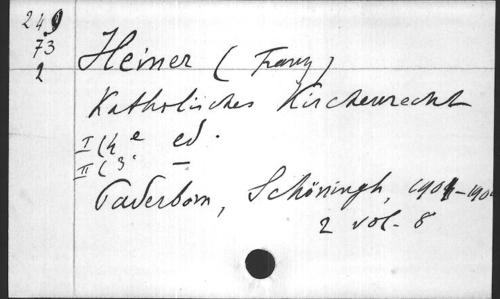 249
73
2
Heiner (Franz)
Katholisches Kirchenrecht
I (4e ed.
II (3e —
Paderborn, Schöningh, 1904-190
2 vol. 8